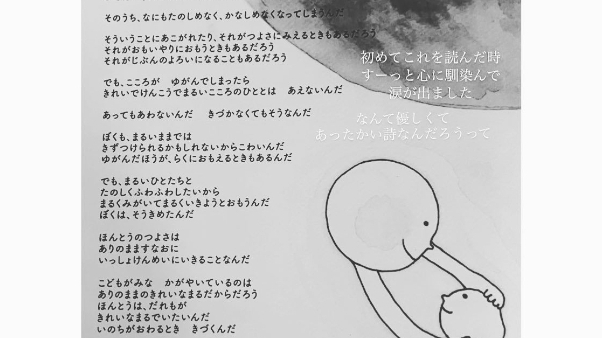 そのうち、なにもたのしめなく、かなしめなくなってしまうんだ
そういうことにあこがれたり、それがつよさにみえるときもあるだろう
それがおもいやりにおもうときもあるだろう
それがじぶんのよろいになることもあるだろう
でも、こころが　ゆがんでしまったら
きれいでけんこうでまるいこころのひととは　あえないんだ
あってもあわないんだ　きづかなくてもそうなんだ
ぼくも、まるいままでは
きずつけられるかもしれないからこわいんだ
ゆがんだほうが、らくにおもえるときもあるんだ
でも、まるいひとたちと
たのしくふわふわしたいから
まるくみがいてまるくいきようとおもうんだ
ぼくは、そうきめたんだ
ほんとうのつよさは
ありのまますなおに
いっしょけんめいにいきることなんだ
こどもがみな　かがやいているのは
ありのままのきれいなまるだからだろう
ほんとうは、だれもが
きれいなまるでいたいんだ
いのちがおわるとき　きづくんだ
初めてこれを読んだ時
すーっと心に馴染んで
涙が出ました
なんて優しくて
あったかい詩なんだろうって